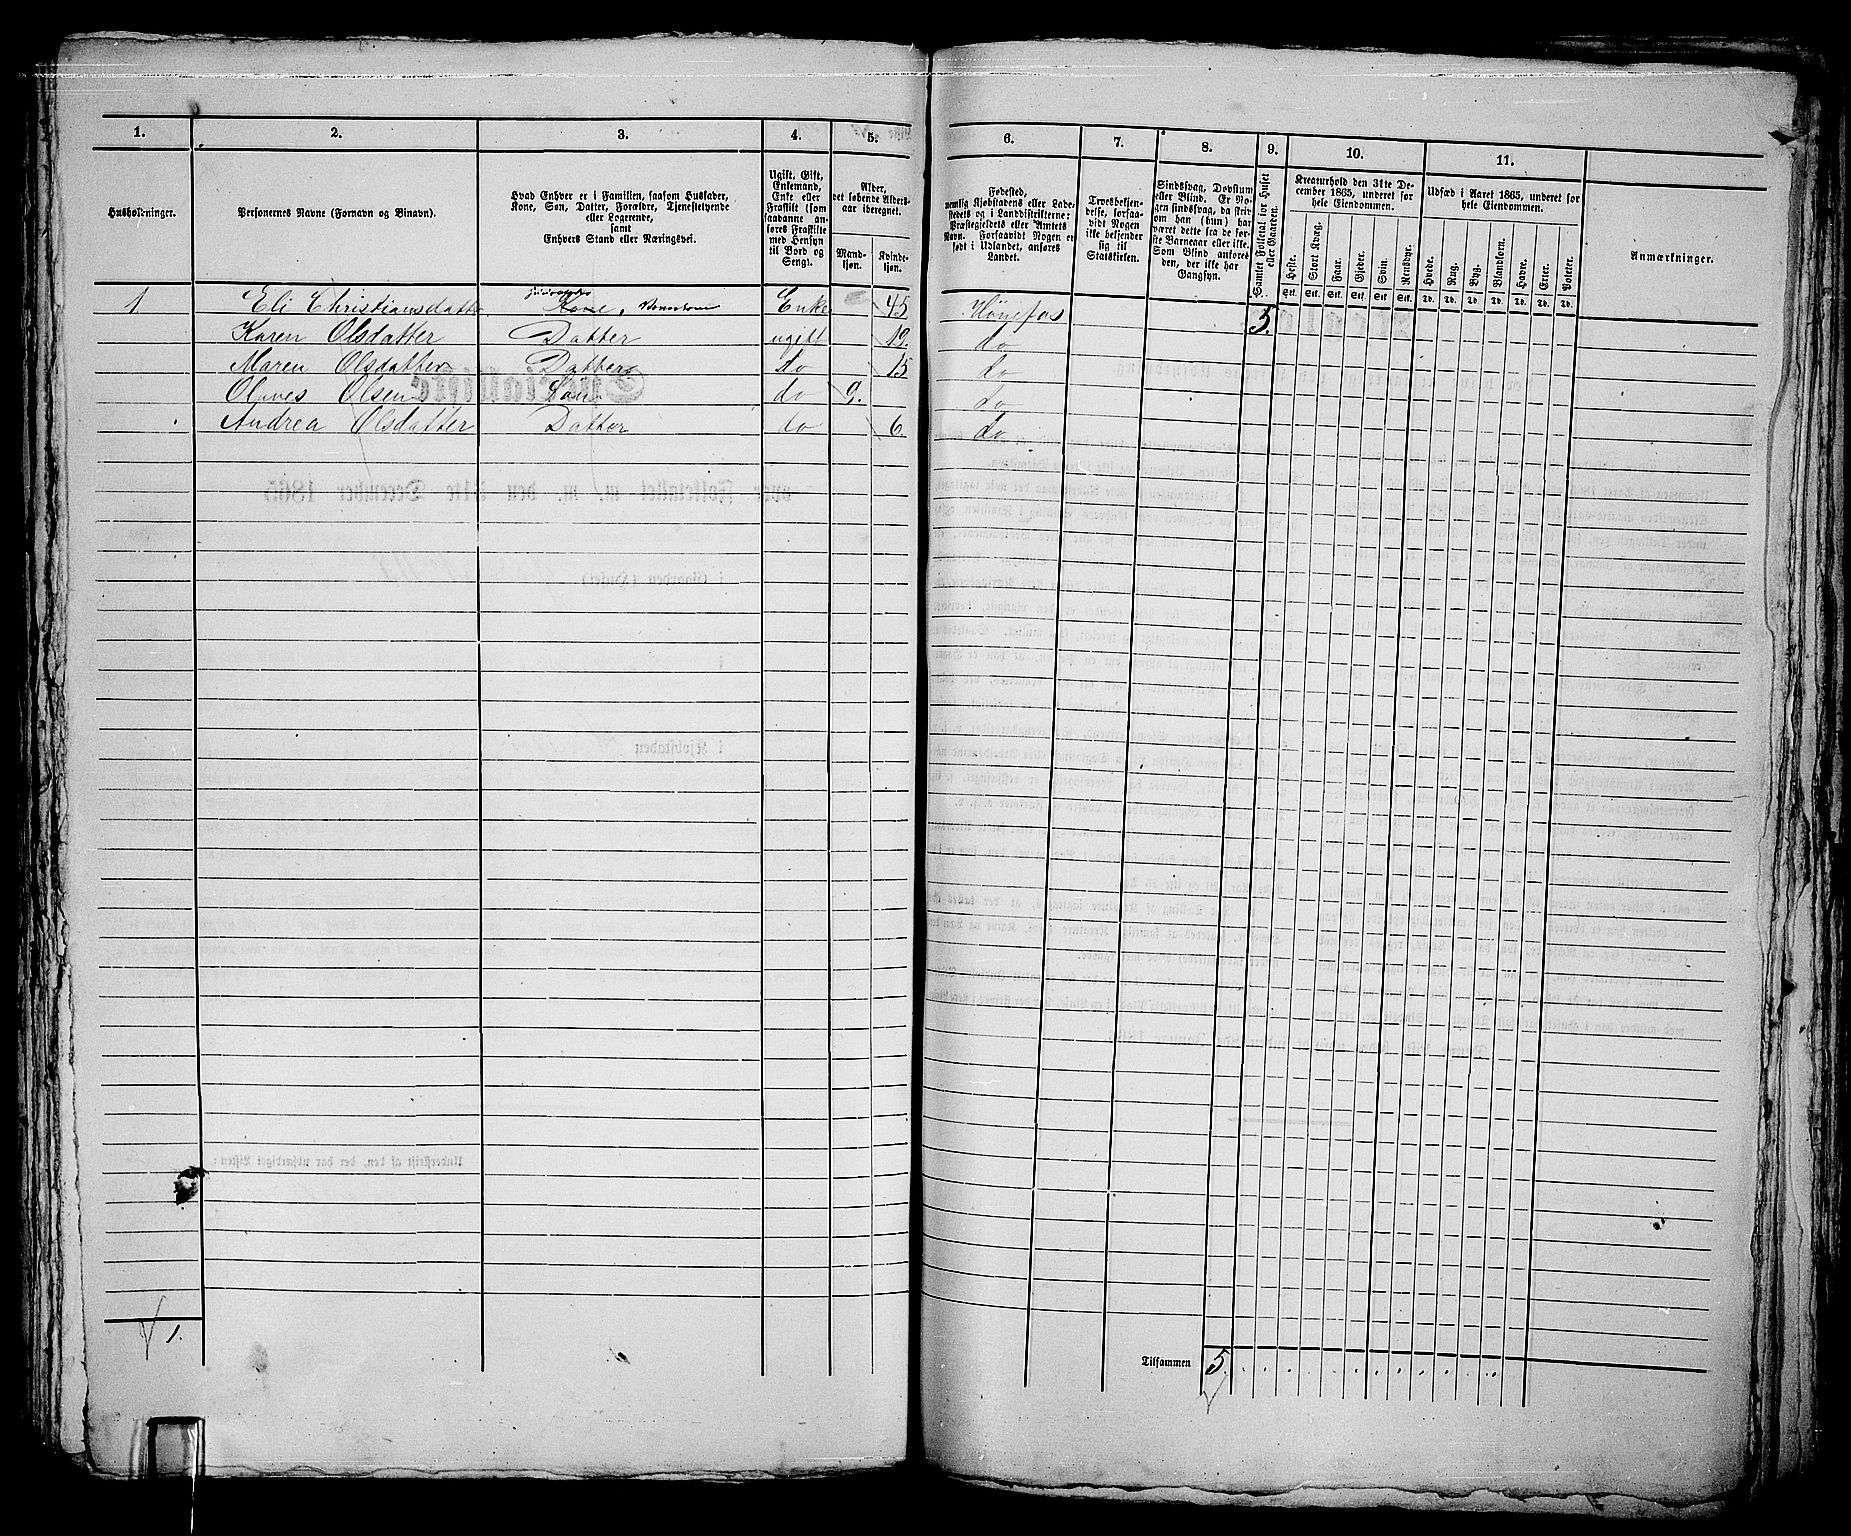 1.
2.
3.
4.
5.
6.
7.
8.
9.
10.
11.
Husholdninger.
Personernes Navne (Fornavn og Binavn).
Hvad Enhver er i Familien, saasom Husfader,
Kone, Søn, Datter, Forældre, Tjenestetyende
eller Logerende,
samt
Enhvers Stand eller Næringsvei.
Ugift, Gift,
Enkemand,
Enke eller
Fraskilt (som
saadanne an-
føres Fraskilte
med Hensyn
til Bord og
Seng).
Alder,
det løbende Alders-
aar iberegnet.
Mand-
kjøn.
Kvinde-
kjøn.
Fødested,
nemlig Kjøbstadens eller Lade-
stedets og i Landdistrikterne:
Præstegjeldets eller Amtets
Navn. Forsaavidt Nogen er
født i Udlandet, anføres
Landet.
Troesbekjen-
delse, forsaa-
vidt Nogen
ikke bekjender
sig til
Statskirken.
Sindssvag, Døvstum
eller Blind. Er No-
gen sindssvag, da skriv
om han (hun) har
været dette fra de før-
ste Barneaar eller ikke.
Som Blind anføres
den, der ikke har
Gangsyn.
Samlet Folketal for Huset
eller Gaarden.
Kreaturhold den 31te De-
cember 1865, underet for
hele Eiendommen.
Heste.
Stort Kvæg.
Faar.
Gjeder.
Svin.
Rensdyr.
Stk. Stk. Stk. Stk. Stk. Stk.
Udsæd i Aaret 1865, underet for
hele Eiendommen.
Hvede.
Rug.
Byg.
Blandkorn.
Havre.
Erter.
Poteter.
Td. Td. Td. Td. Td. Td. Td.
Anmærkninger.
1 Eli Christiansdatter Kone, Enke 45 Hønefos 5.
Karen Olsdatter Datter ugift 19. do
Maren Olsdatter Datter do 15 do
Olaves Olsen Søn do 9. do
Andrea Olsdatter Datter do 6. do
1.
Tilsammen 5.